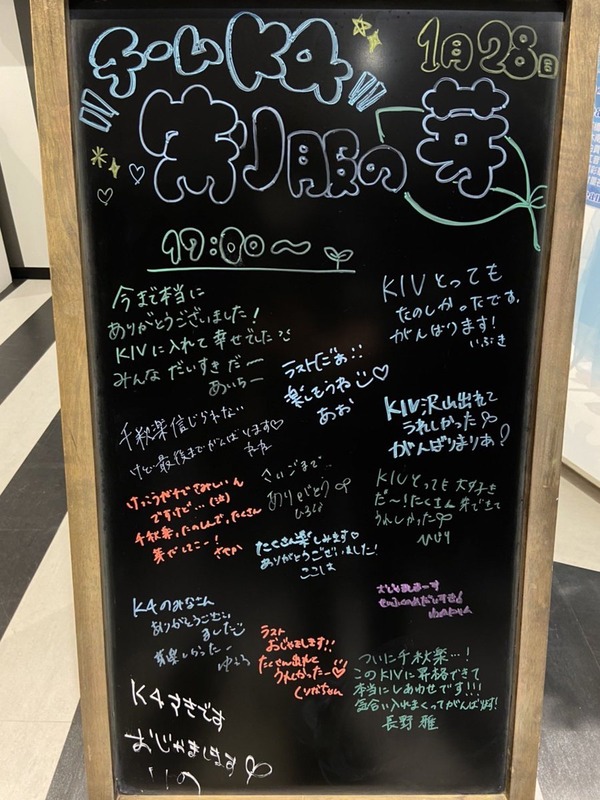 チームK4
1月28日
制服の芽
17:00〜
今まで本当に
ありがとうございました!
KIVに入れて幸せでした
みんなだいすきだー
あいちー
KIVとっても
たのしかったです。
がんばります!
いぶき
ラストだぁ!!
楽しもうね♡
あお
千秋楽信じられない
けど最後までがんばります♡
KIV沢山出れて
うれしかった
がんばりまりあ!
けっこうガチでさみしいん
ですけど…(泣)
千秋楽、たのしんで、たくさん
芽でしてこー!
さやか
さいごまで…
ありがとう
KIVとっても大好き
だ〜!たくさん
うれしかった
ひより
たくさん楽しみます♡
ありがとうございました!
ここは
K4のみなさん
ありがとうござい
ました
ゆうら
ラスト
おじゃまします!!
たくさん出れて
うれしかったー♡
くりなちゃん
ついに千秋楽…!
このKIVに昇格できて
本当にしあわせです!!!
気合い入れまくってがんばります!
長野 雅
K4
おじゃまします
りの